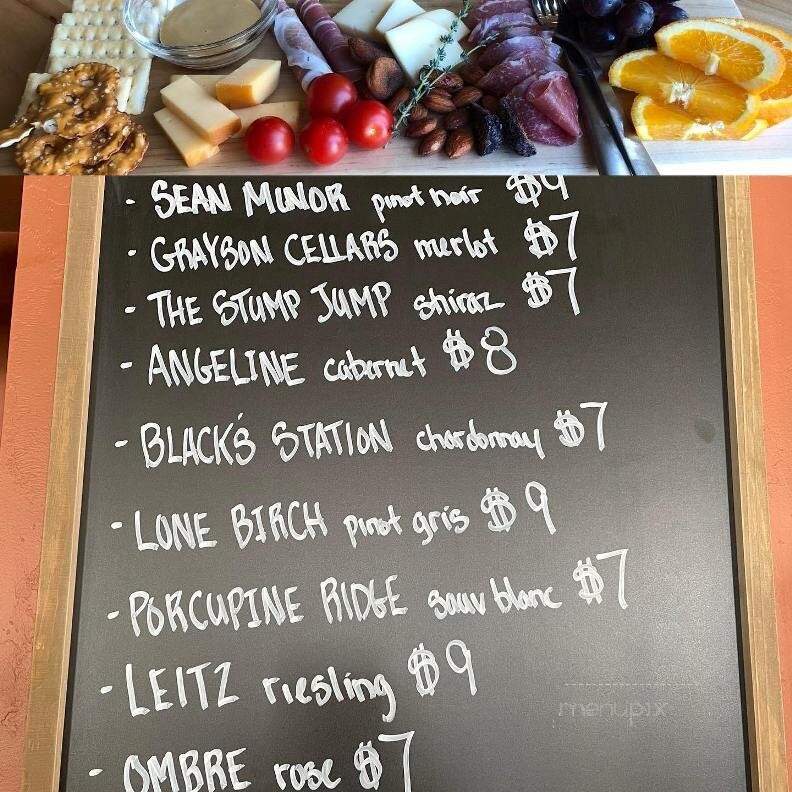 - SEAN MINOR pinot noir $9
- GRAYSON CELLARS merlot $7
- THE STUMP JUMP shiraz $7
- ANGELINE cabernet $8
- BLACK'S STATION chardonnay $7
- LONE BIRCH pinot gris $9
- PORCUPINE RIDGE sauv blanc $7
- LEITZ riesling $9
menupix
- OMBRE rose $7